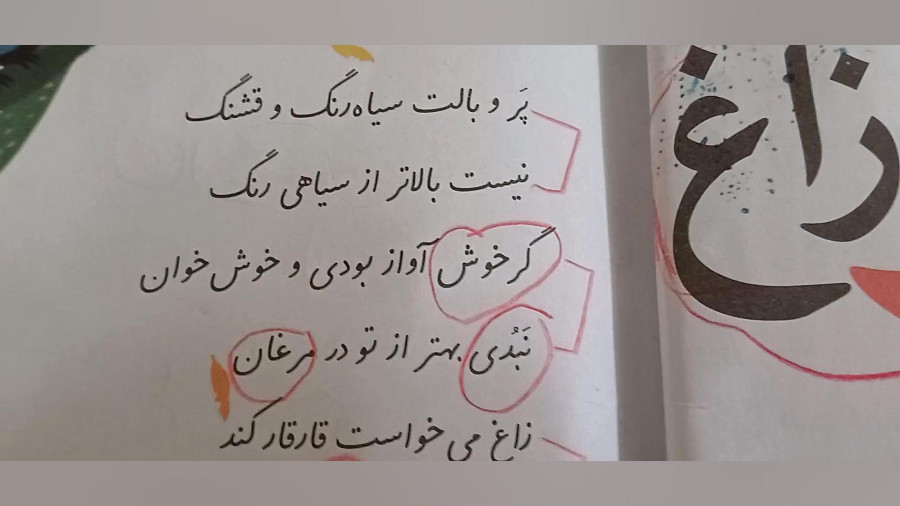 پَر و بالت سیاه‌رنگ و قشنگ
نیست بالاتر از سیاهی رنگ
گر خوش آواز بودی و خوش خوان
نَبُدی بهتر از تو در مرغان
زاغ می خواست قارقار کند
زاغ